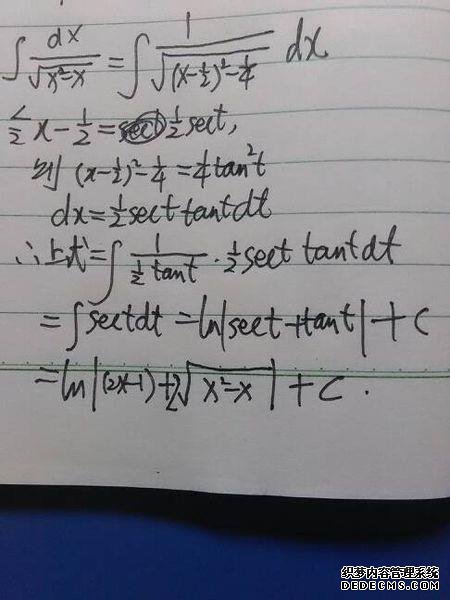 ∫ dx/√(x²-x) = ∫ 1/√((x-1/2)²-1/4) dx
令 x-1/2 = 1/2 sect,
则 (x-1/2)²-1/4 = 1/4 tan²t
dx = 1/2 sect tant dt
∴上式 = ∫ 1/(1/2 tant) · 1/2 sect tant dt
= ∫ sect dt = ln|sect+tant| + C
= ln|(2x-1)+2√(x²-x)| + C .
织梦内容管理系统
DEDECMS.COM